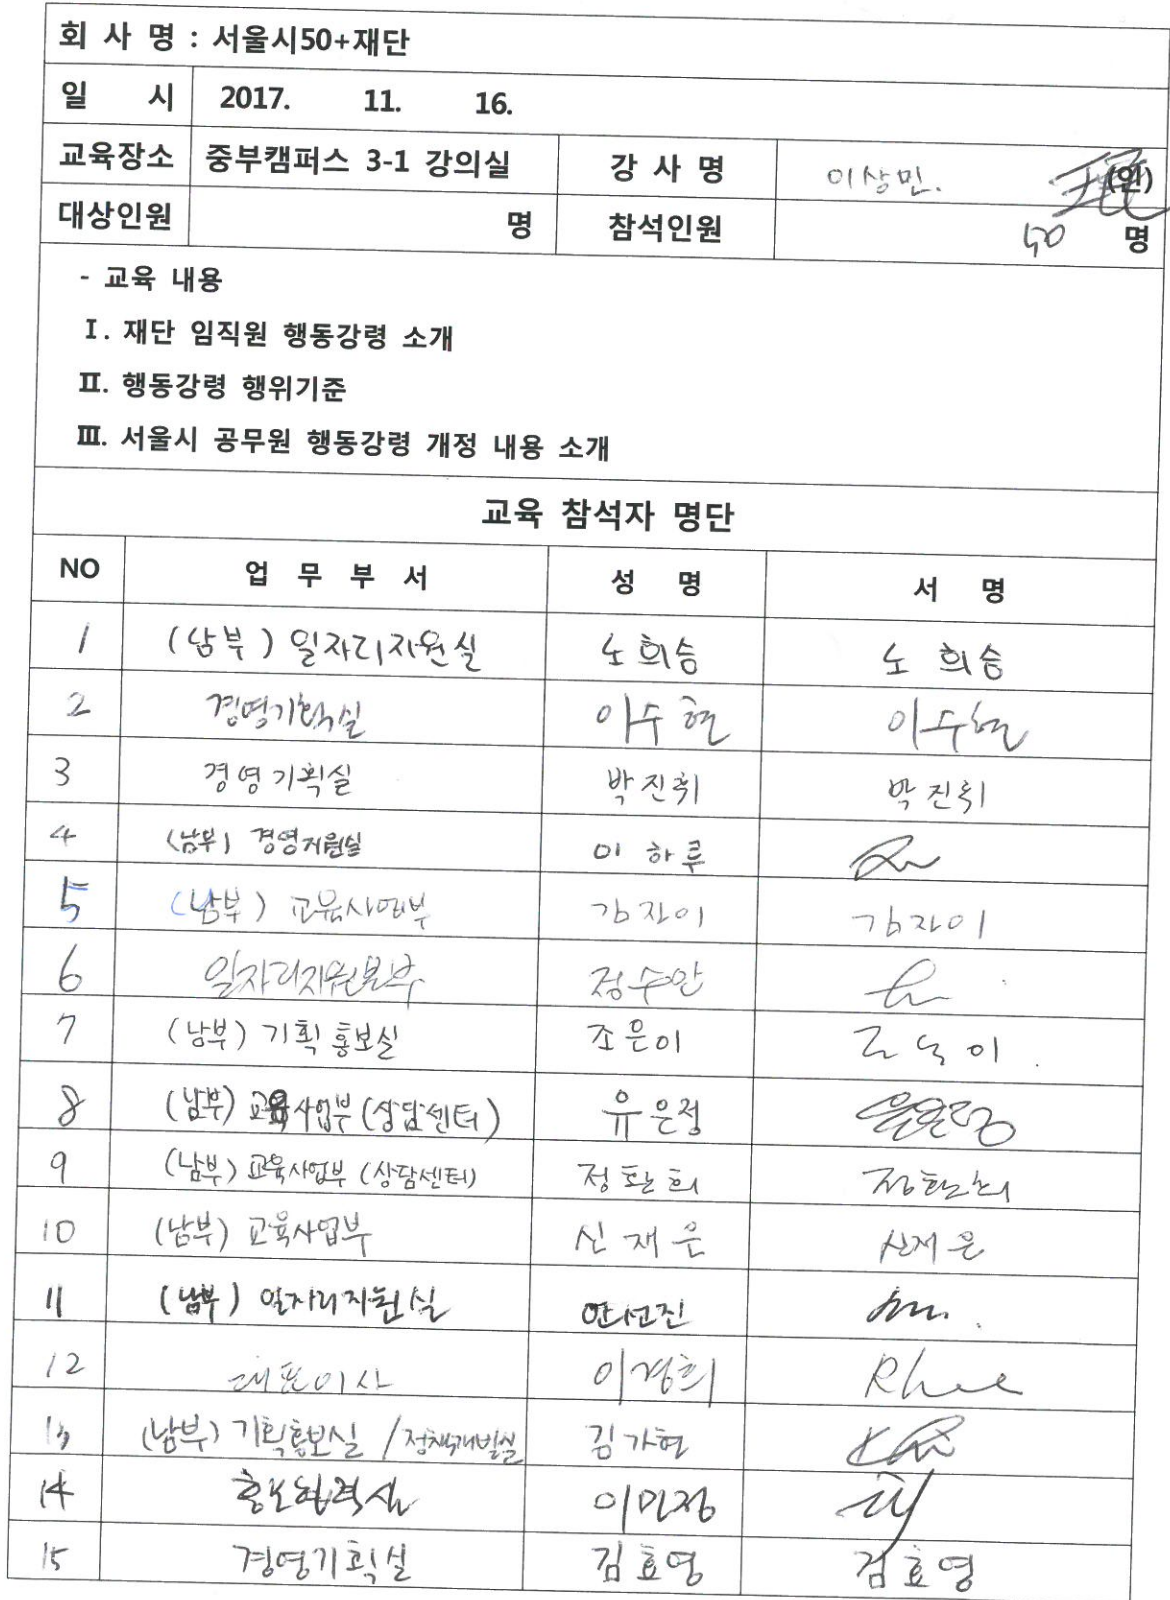 회 사 명 : 서울시50+재단
일 시 2017. 11. 16.
교육장소 중부캠퍼스 3-1 강의실 강 사 명 이상민. (인)
대상인원 명 참석인원 50 명
- 교육 내용
Ⅰ. 재단 임직원 행동강령 소개
Ⅱ. 행동강령 행위기준
Ⅲ. 서울시 공무원 행동강령 개정 내용 소개
교육 참석자 명단
NO 업 무 부 서 성 명 서 명
1 (남부) 일자리지원실 노희승 노희승
2 경영기획실 이수현 이수현
3 경영기획실 박진휘 박진휘
4 (남부) 경영지원실 이하루
5 (남부) 교육사업부 김잔이 김잔이
6 일자리지원본부 정수안
7 (남부) 기획홍보실 조은이 조은이
8 (남부) 교육사업부 (상담센터) 유은정
9 (남부) 교육사업부 (상담센터) 정환희 정환희
10 (남부) 교육사업부 신재은 신재은
11 (남부) 일자리지원실 안선진
12 대표이사 이경희 Rhee
13 (남부) 기획홍보실 / 정책개발실 김가현
14 홍보협력실 이민정
15 경영기획실 김효영 김효영